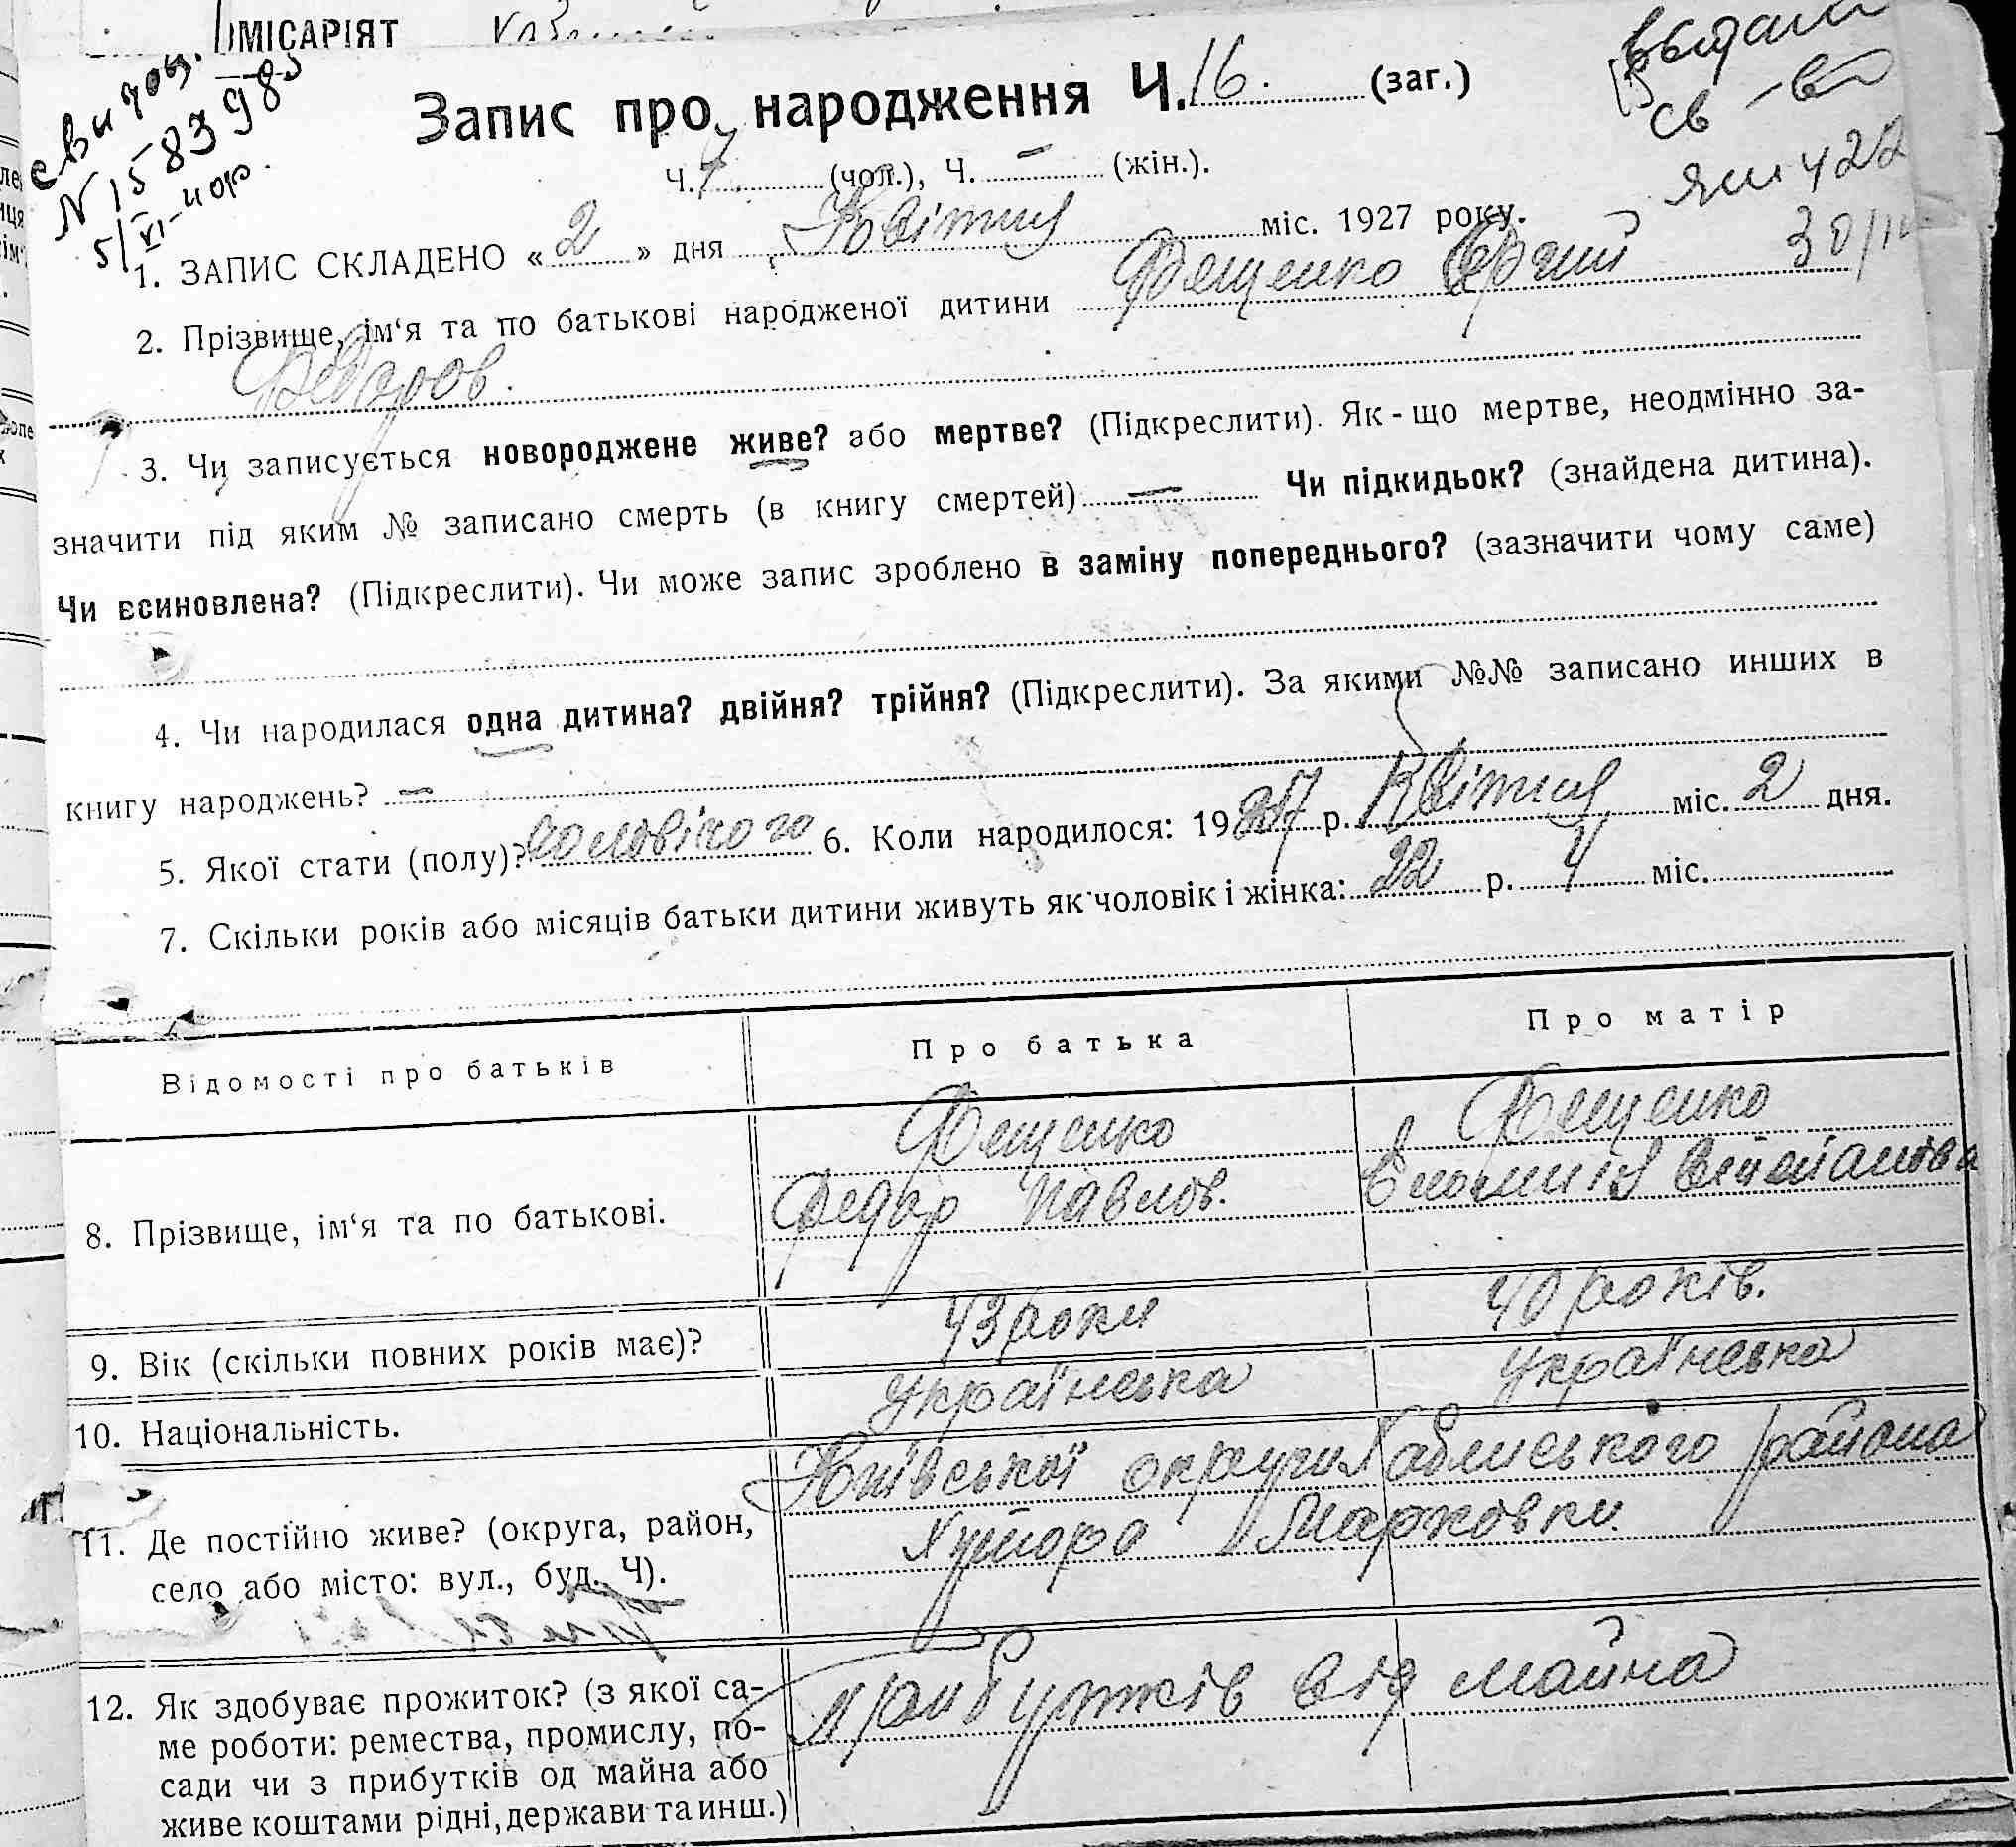 ОМІСАРІЯТ
свидоц.
N 158398
5/VI-40р.
Выдали
св-во
ЯШ 422
Запис про народження Ч. 16. (заг.)
Ч. 7. (чол.), Ч. — (жін.).
1. ЗАПИС СКЛАДЕНО « 2 » дня Квітня міс. 1927 року.
2. Прізвище, ім‘я та по батькові народженої дитини Фещенко Сергий
Федоров.
3. Чи записується новороджене живе? або мертве? (Підкреслити). Як-що мертве, неодмінно за-
значити під яким № записано смерть (в книгу смертей) — Чи підкидьок? (знайдена дитина).
Чи всиновлена? (Підкреслити). Чи може запис зроблено в заміну попереднього? (зазначити чому саме)
4. Чи народилася одна дитина? двійня? трійня? (Підкреслити). За якими №№ записано инших в
книгу народжень? —
5. Якої стати (полу)? чоловічого 6. Коли народилося: 1927 р. Квітня міс. 2 дня.
7. Скільки років або місяців батьки дитини живуть як чоловік і жінка: 22 р. 4 міс.
Відомості про батьків Про батька Про матір
Фещенко Фещенко
8. Прізвище, ім‘я та по батькові. Федор Павлов. Степанова
9. Вік (скільки повних років має)? 43 роки 40 років.
10. Національність. українська українська
Київської округи района
11. Де постійно живе? (округа, район, Хутора Марковки.
село або місто: вул., буд. Ч).
12. Як здобуває прожиток? (з якої са- прибутків від майна
ме роботи: ремества, промислу, по-
сади чи з прибутків од майна або
живе коштами рідні, держави та инш.)